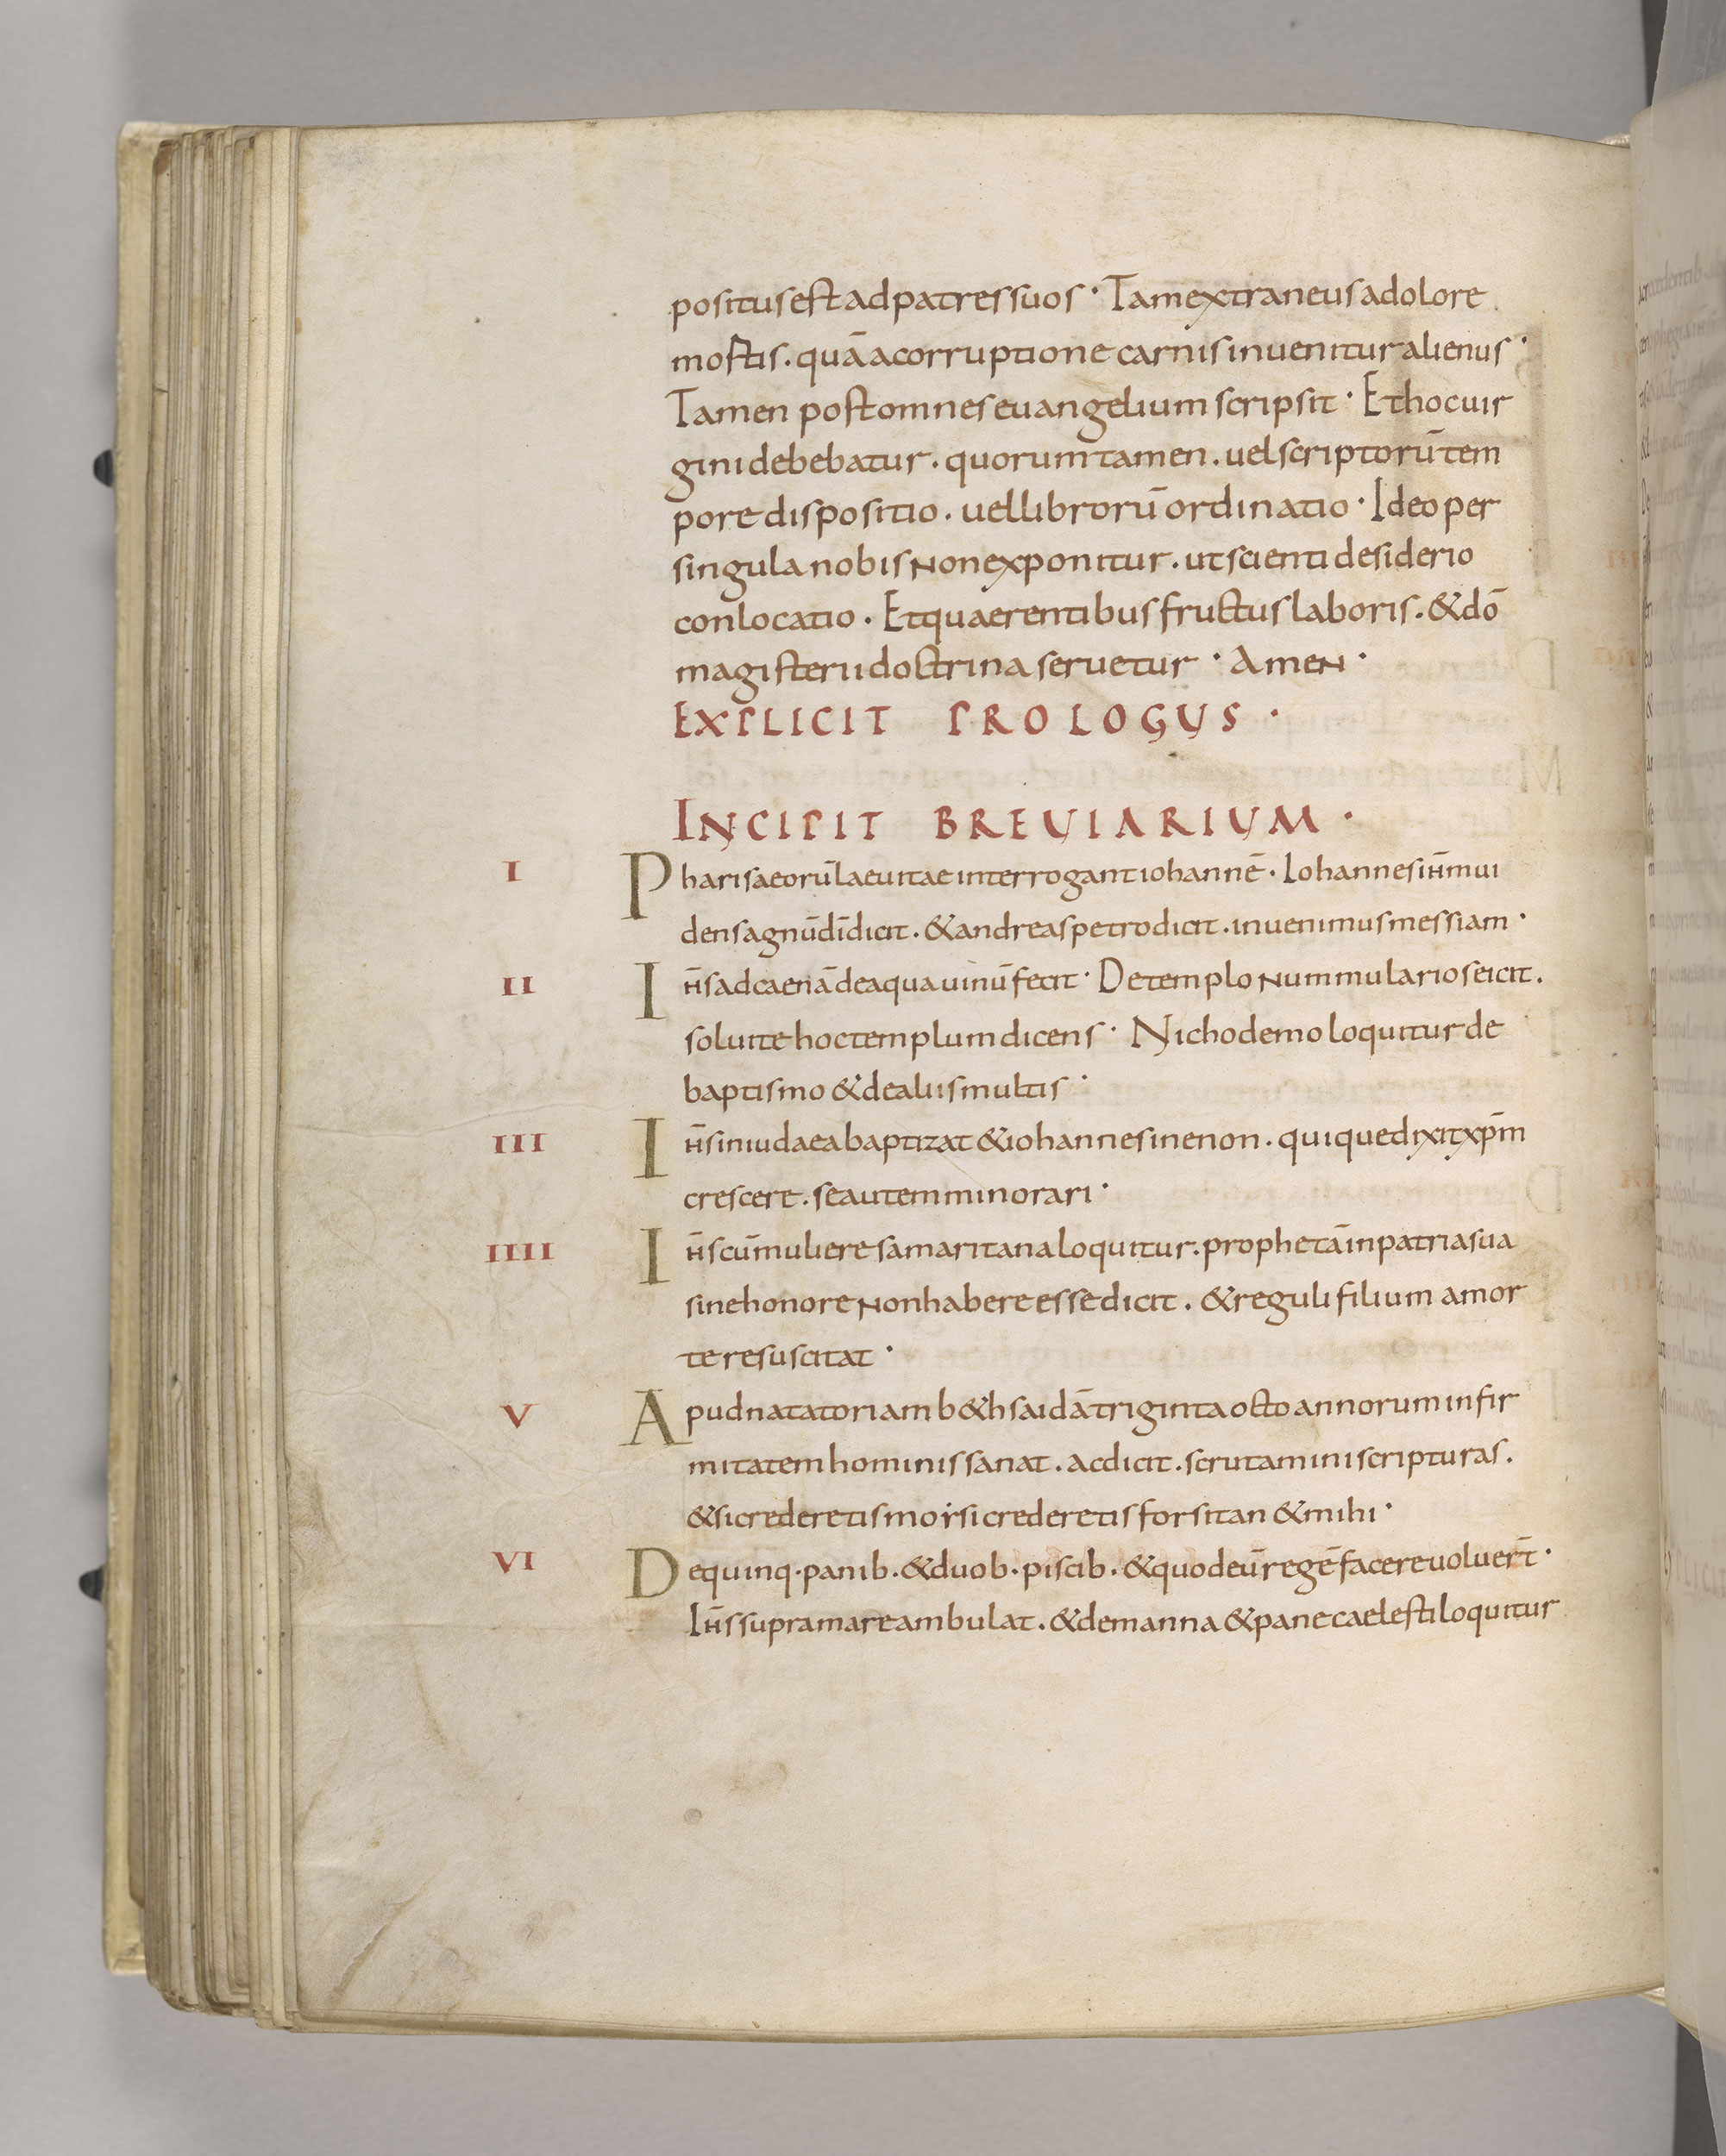 positus est ad patres suos · Tam extraneus a dolore
mostis . quā a corruptione carnis inuenitur alienus ·
Tamen post omnes euangelium scripsit · Et hoc uir
gini debebatur . quorum tamen . uel scriptorū tem
pore dispositio . uel librorū ordinatio · Ideo per
singula nobis non exponitur . ut scienti desiderio
conlocatio . Et quaerentibus fructus laboris . & dō
magisterii doctrina seruetur · Amen ·
EXPLICIT PROLOGUS ·
INCIPIT BREUIARIUM ·
I Pharisaeorū laeuitae interrogant iohannē · Iohannes ih̄m ui
dens agnū dī dicit . & andreas petro dicit . inuenimus messiam ·
II Ih̄s ad caenā de aqua uinū fecit · De templo nummulario seicit .
soluite hoc templum dicens · Nichodemo loquitur de
baptismo & de aliis multis ·
III Ih̄s in iudaea baptizat & iohannes in enon . qui que dixit xp̄m
crescere . se autem minorari ·
IIII Ih̄s cū muliere samaritana loquitur . prophetā in patria sua
sine honore non habere esse dicit . & reguli filium a mor
te resuscitat ·
V Apud natatoriam b&hsaidā triginta octo annorum infir
mitatem hominis sanat . ac dicit . scrutamini scripturas .
& si crederetis moẏsi crederetis forsitan & mihi ·
VI De quinq · panib . & duob · piscib . & quod eū regē facere uoluer̄t ·
Ih̄s supra mare ambulat . & de manna & pane caelesti loquitur